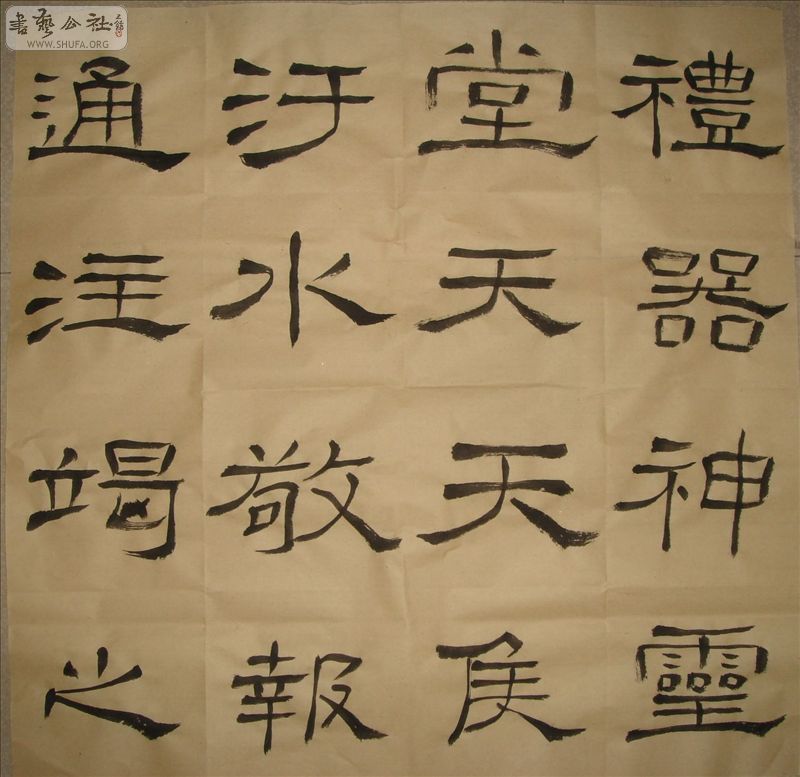 書藝公社
WWW.SHUFA.ORG
禮器神靈
堂天天侯
汙水敬報
通注竭之